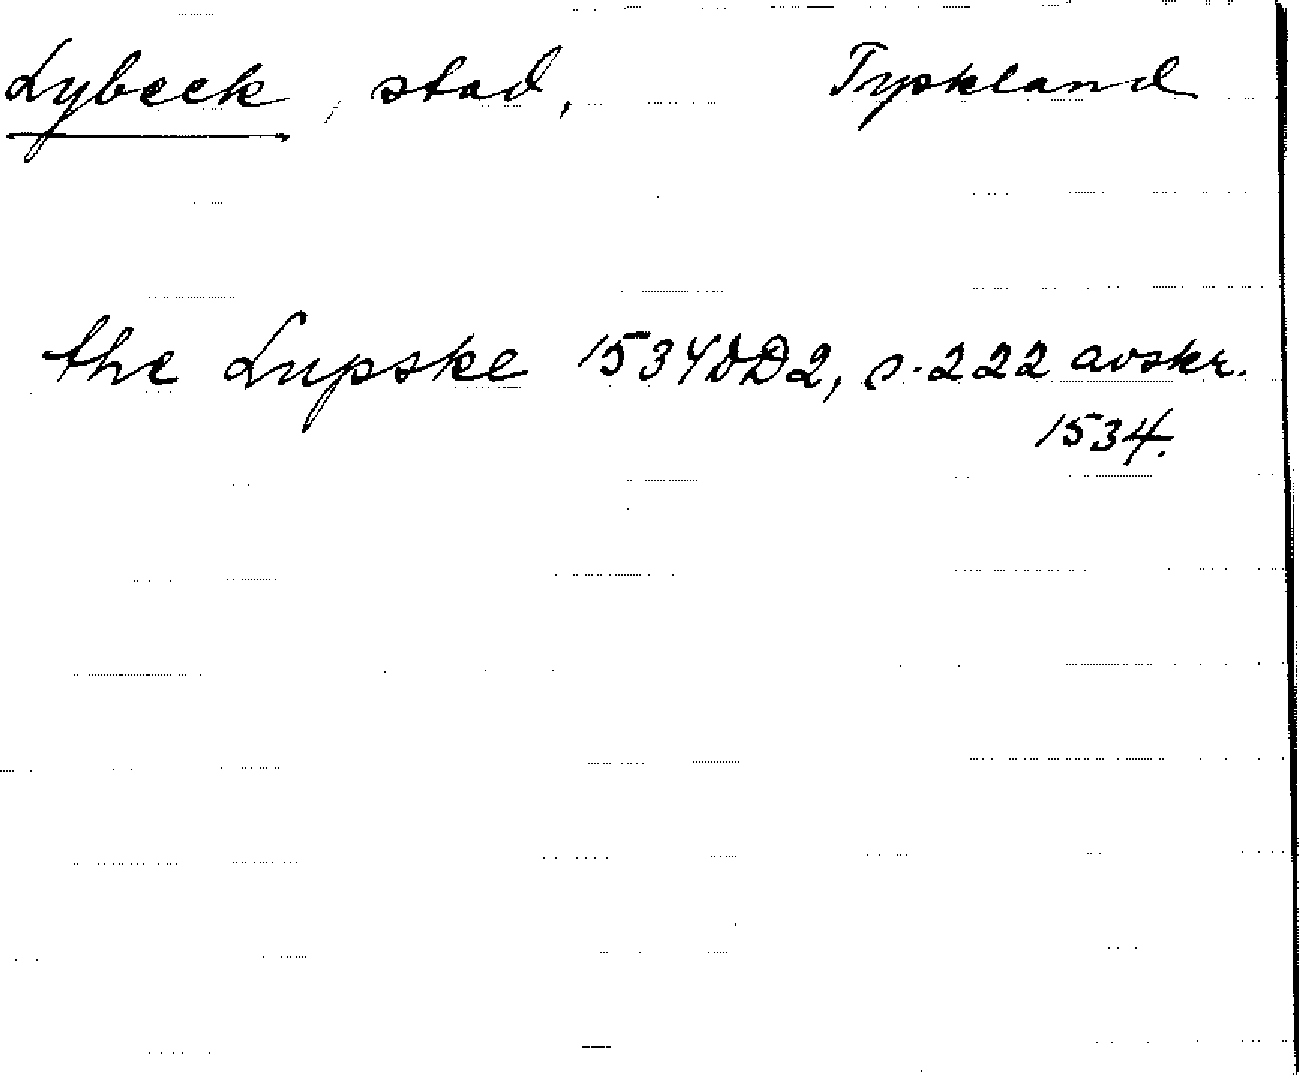 Lybeck, stad, Tyskland
the Lupske 1534 DD2, s. 222 avskr.
1534.